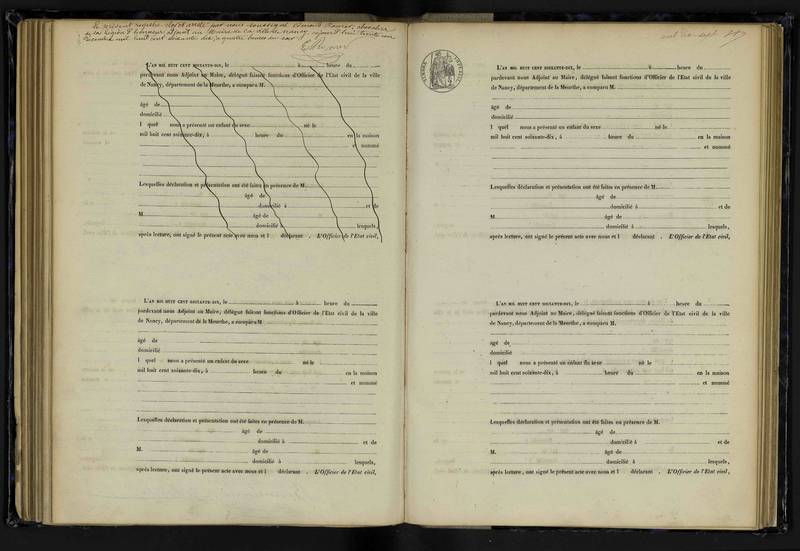 Le présent registre clos et arrêté par nous soussigné
de la légion d'honneur adjoint au Maire de la ville de Nancy, aujourd'hui trente un
Décembre mil huit cent soixante dix, à quatre heures du soir
L'AN MIL HUIT CENT SOIXANTE-DIX, le à heure du
pardevant nous Adjoint au Maire, délégué faisant fonctions d'Officier de l'Etat civil de la ville
de Nancy, département de la Meurthe, a comparu M.
âgé de
domicilié
l quel nous a présenté un enfant du sexe né le
mil huit cent soixante-dix, à heure du en la maison
et nommé
Lesquelles déclaration et présentation ont été faites en présence de M.
âgé de
domicilié à et de
M. âgé de
domicilié à lesquels,
après lecture, ont signé le présent acte avec nous et l déclarant . L'Officier de l'Etat civil,
L'AN MIL HUIT CENT SOIXANTE-DIX, le à heure du
pardevant nous Adjoint au Maire, délégué faisant fonctions d'Officier de l'Etat civil de la ville
de Nancy, département de la Meurthe, a comparu M
âgé de
domicilié
l quel nous a présenté un enfant du sexe né le
mil huit cent soixante-dix, à heure du en la maison
et nommé
Lesquelles déclaration et présentation ont été faites en présence de M.
âgé de
domicilié à et de
M. âgé de
domicilié à lesquels,
après lecture, ont signé le présent acte avec nous et l déclarant . L'Officier de l'Etat civil,
L'AN MIL HUIT CENT SOIXANTE-DIX, le à heure du
pardevant nous Adjoint au Maire, délégué faisant fonctions d'Officier de l'Etat civil de la ville
de Nancy, département de la Meurthe, a comparu M.
âgé de
domicilié
l quel nous a présenté un enfant du sexe né le
mil huit cent soixante-dix, à heure du en la maison
et nommé
Lesquelles déclaration et présentation ont été faites en présence de M.
âgé de
domicilié à et de
M. âgé de
domicilié à lesquels,
après lecture, ont signé le présent acte avec nous et l déclarant . L'Officier de l'Etat civil,
L'AN MIL HUIT CENT SOIXANTE-DIX, le à heure du
pardevant nous Adjoint au Maire, délégué faisant fonctions d'Officier de l'Etat civil de la ville
de Nancy, département de la Meurthe, a comparu M.
âgé de
domicilié
l quel nous a présenté un enfant du sexe né le
mil huit cent soixante-dix, à heure du en la maison
et nommé
Lesquelles déclaration et présentation ont été faites en présence de M.
âgé de
domicilié à et de
M. âgé de
domicilié à lesquels,
après lecture, ont signé le présent acte avec nous et l déclarant . L'Officier de l'Etat civil,